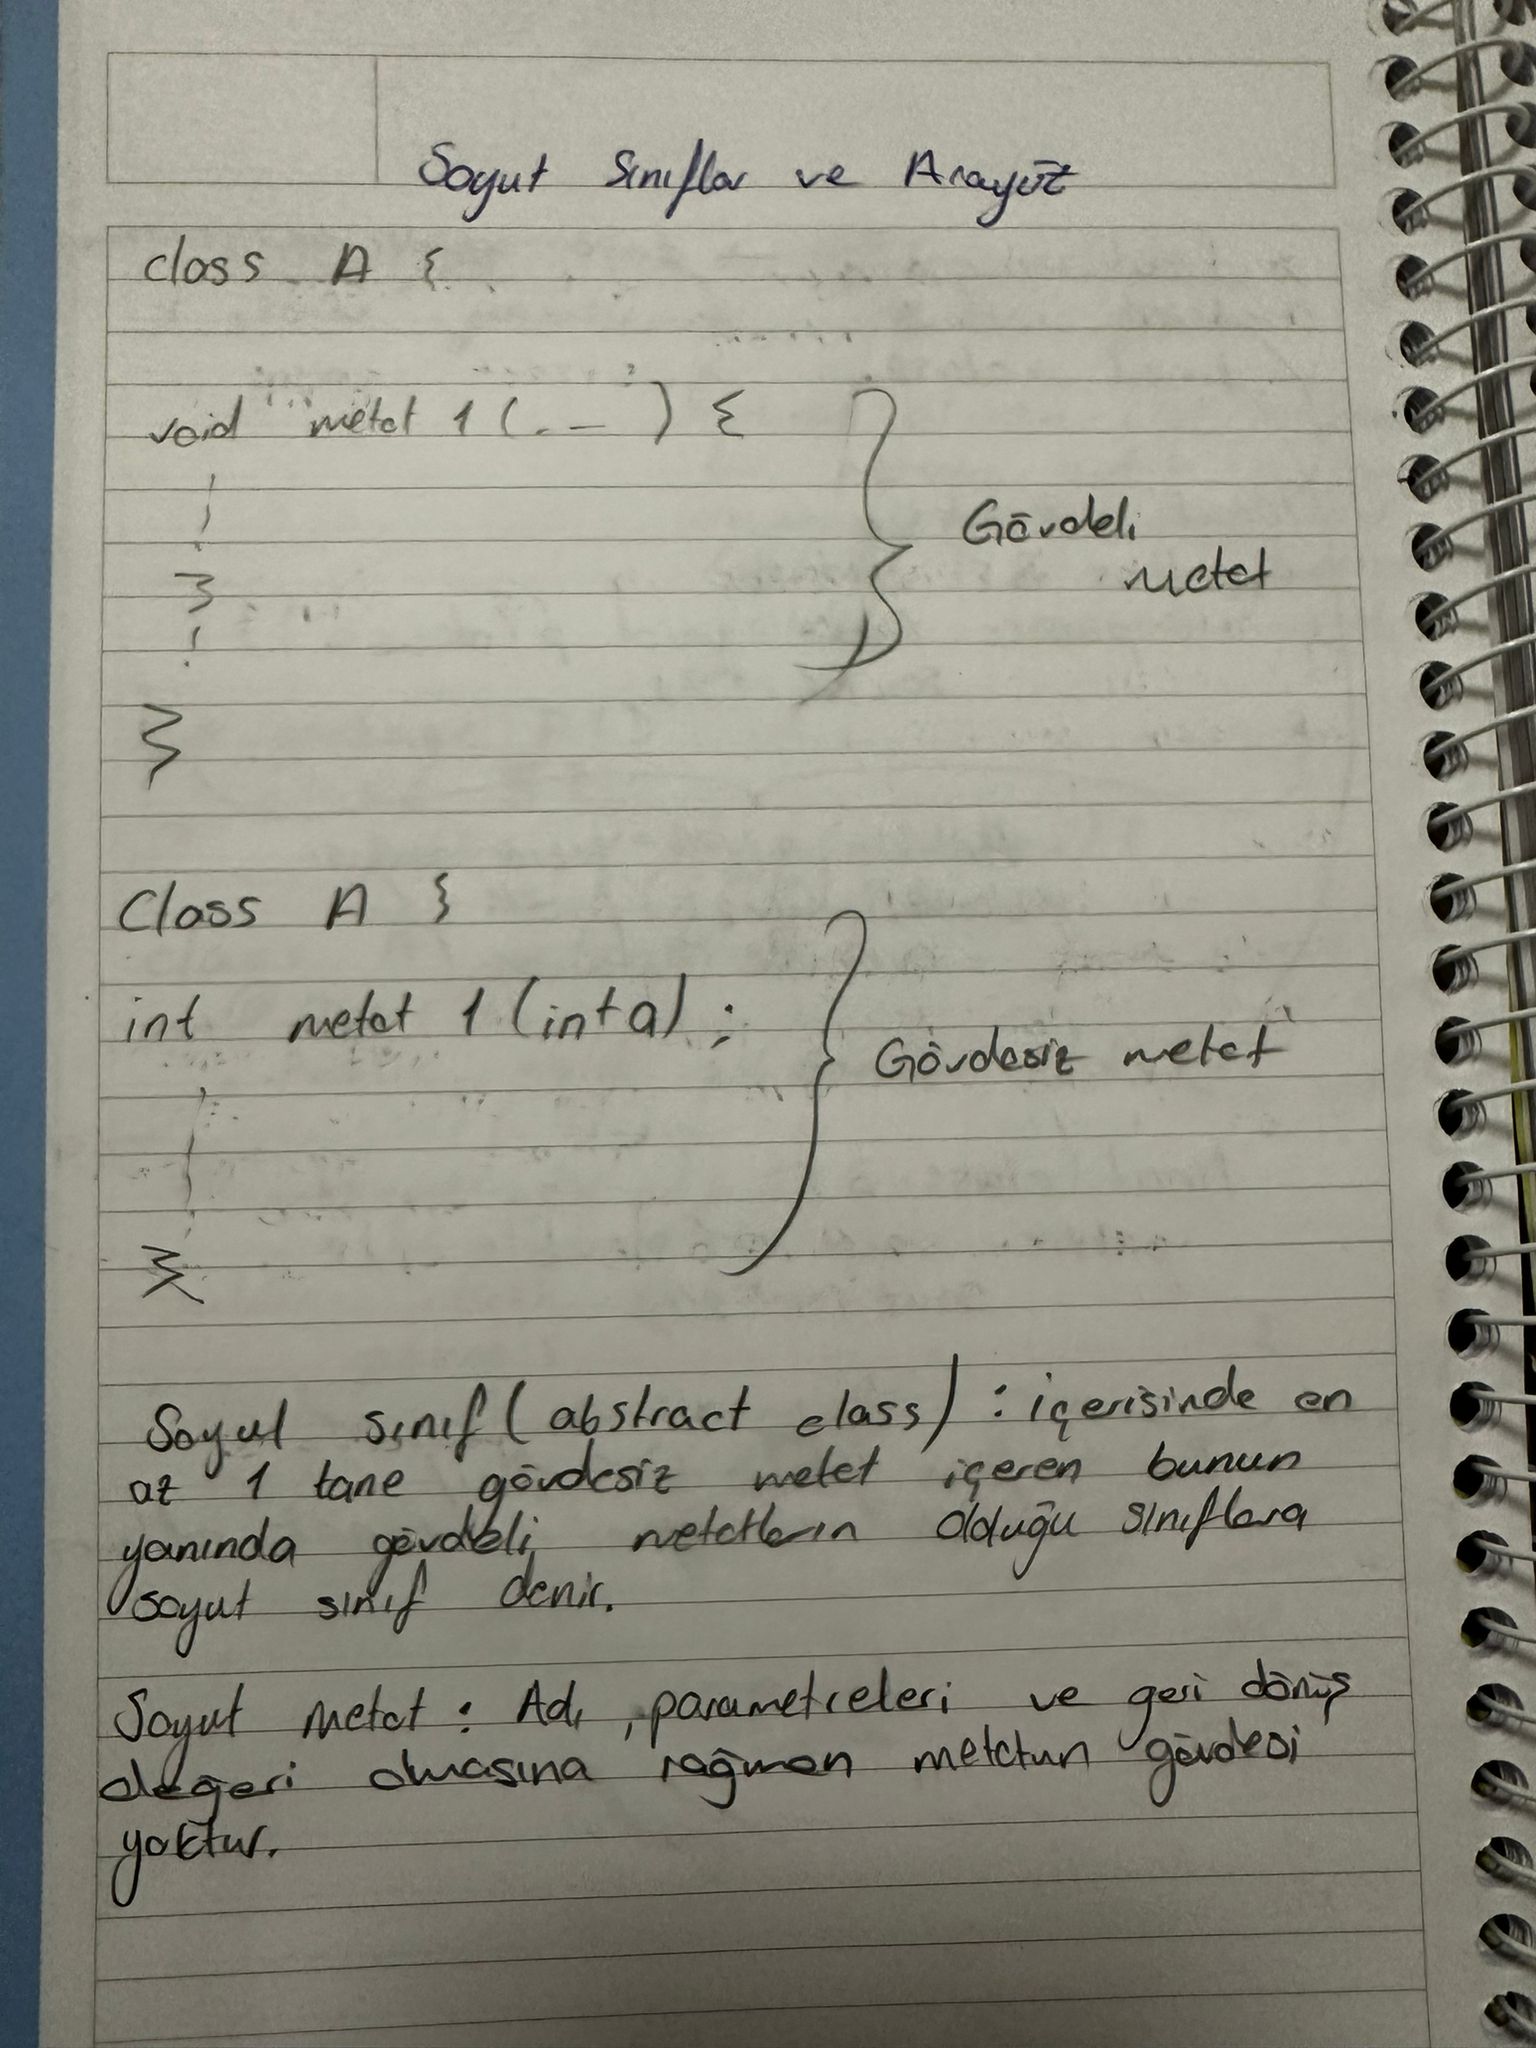 Soyut Sınıflar ve Arayüz
class A {
void metot 1 (. _ ) {
}
}
Gövdeli
metot
Class A {
int metot 1 (int a) ;
}
Gövdesiz metot
Soyut sınıf (abstract class) : içerisinde en
az 1 tane gövdesiz metot içeren bunun
yanında gövdeli metotların olduğu sınıflara
soyut sınıf denir.
Soyut Metot : Adı , parametreleri ve geri dönüş
değeri olmasına rağmen metotun gövdesi
yoktur.